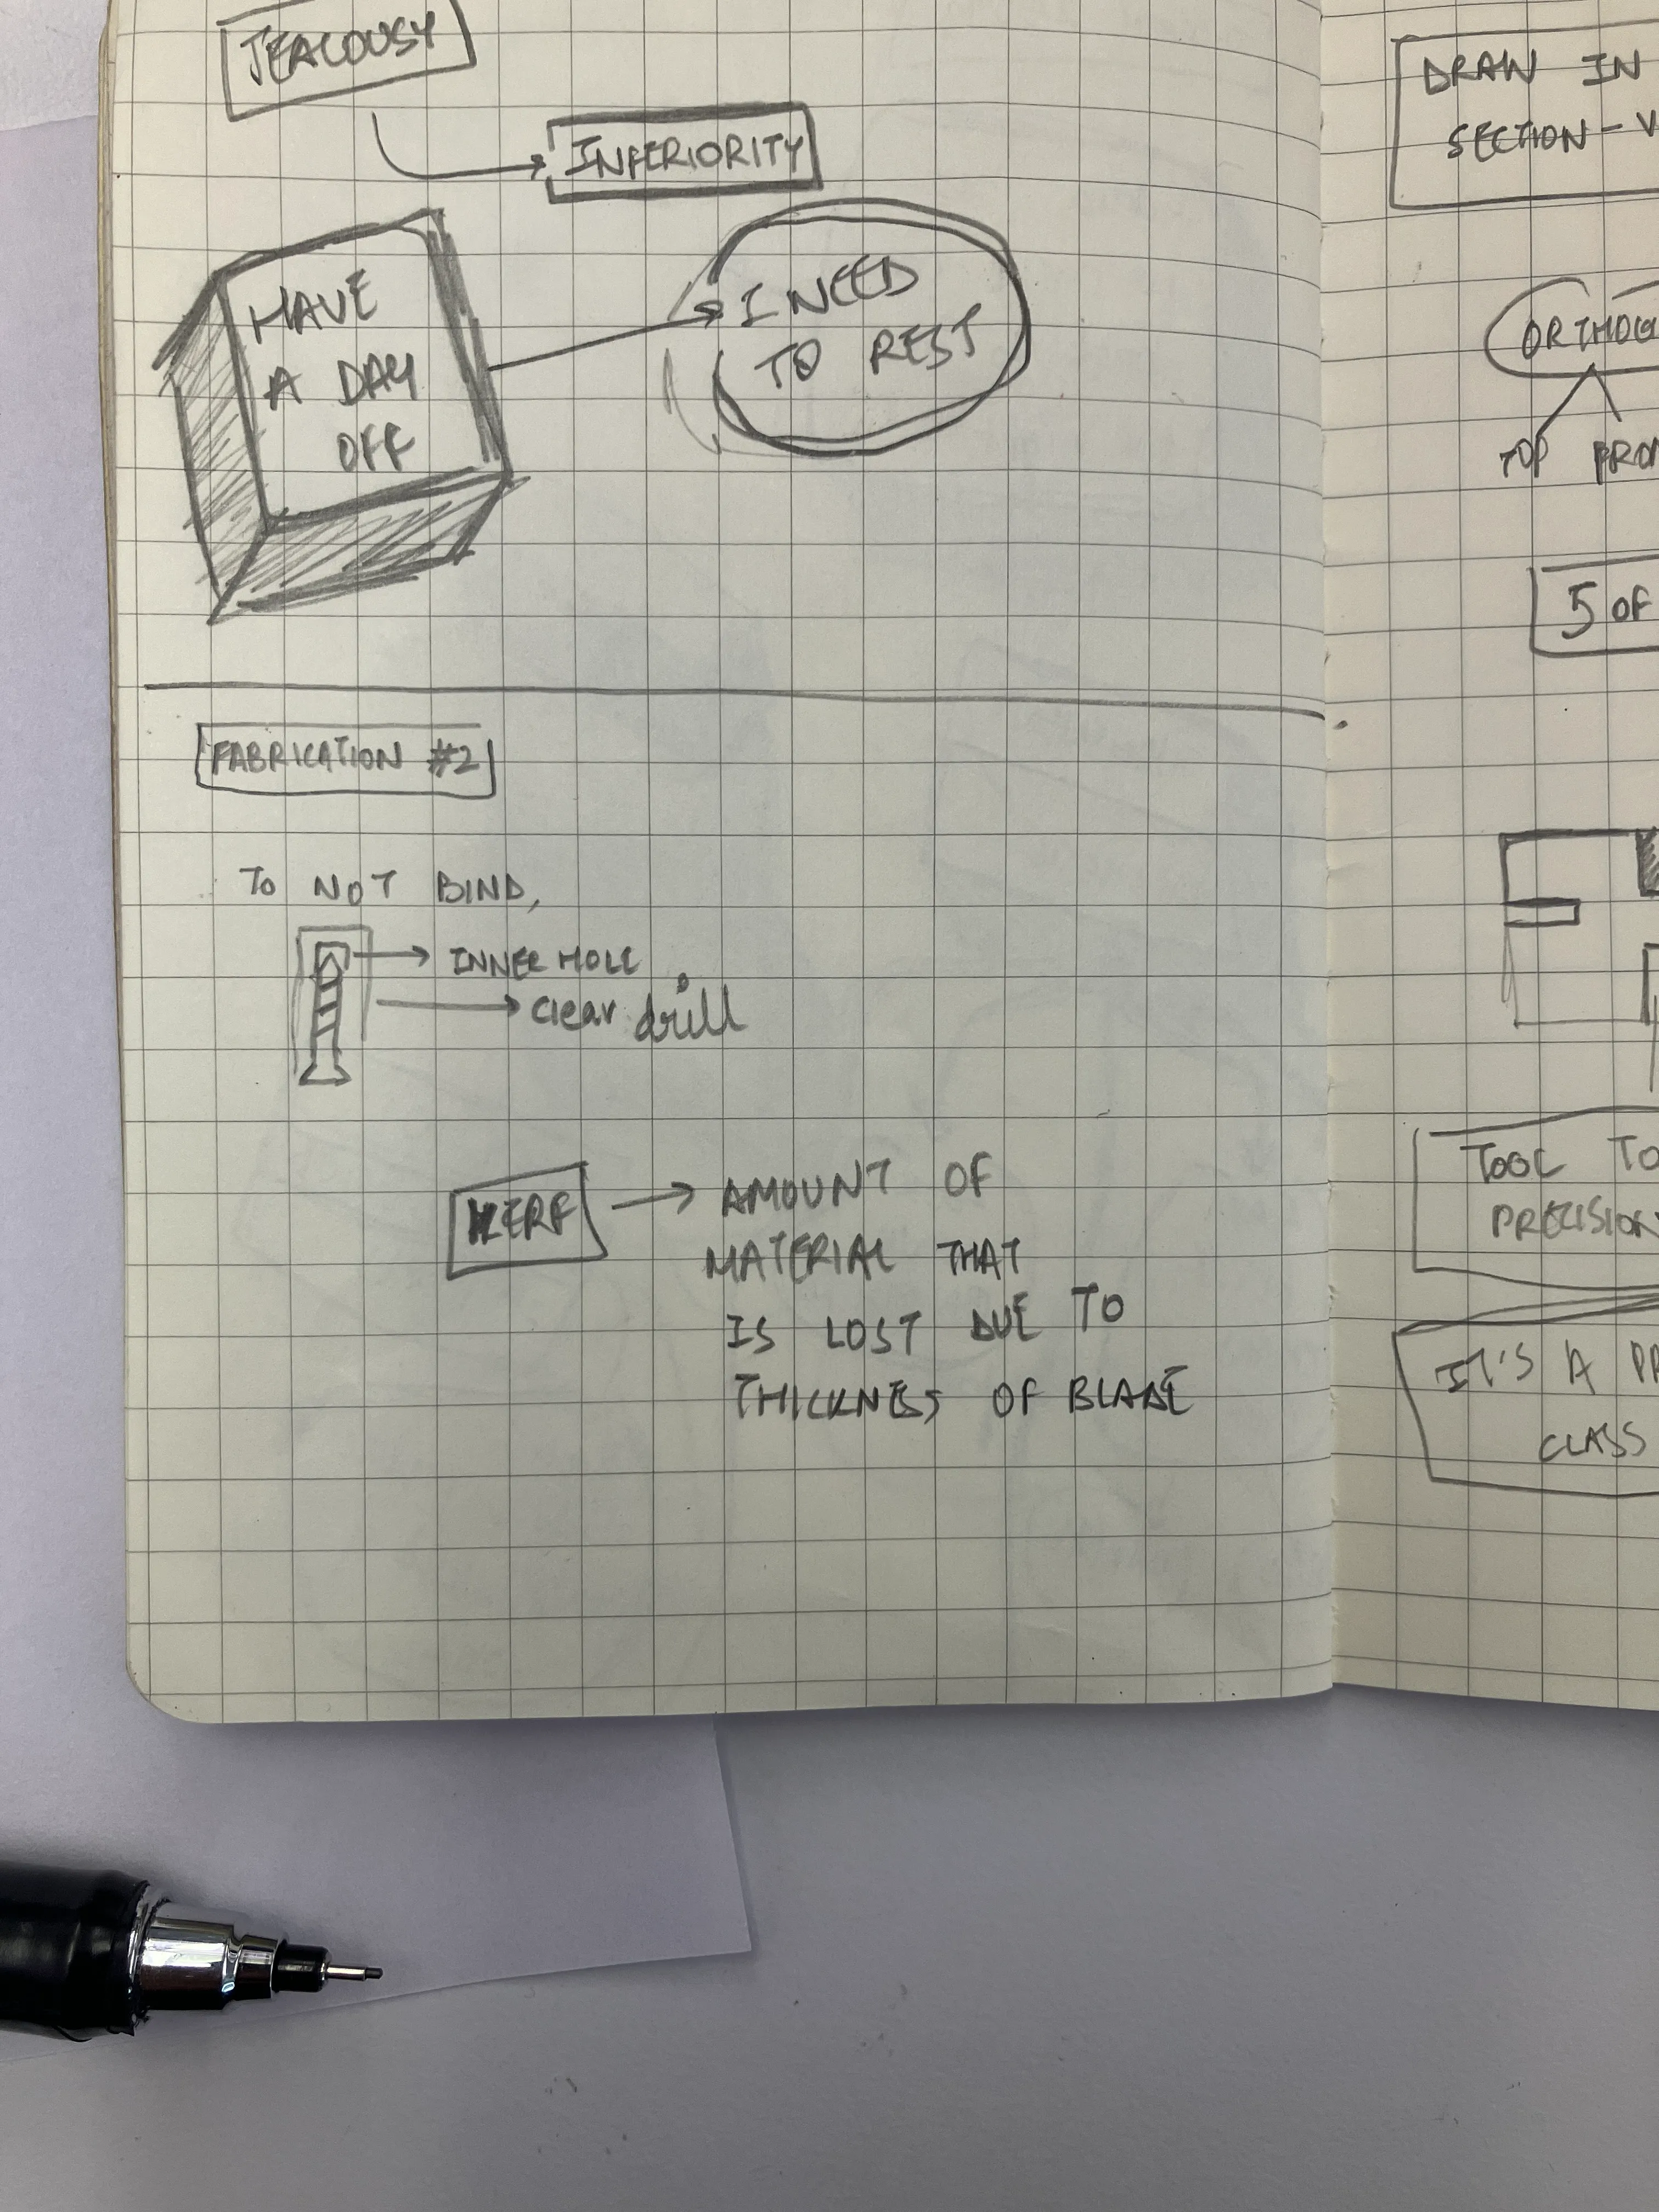 JEALOUSY
INFERIORITY
HAVE
A DAY
OFF
I NEED
TO REST
FABRICATION #2
TO NOT BIND,
INNER HOLE
clear drill
KERF
AMOUNT OF
MATERIAL THAT
IS LOST DUE TO
THICKNESS OF BLADE
DRAW IN
SECTION - V
ORTHOG
TOP FRON
5 OF
TOOL TO
PRECISION
IT'S A PR
CLASS